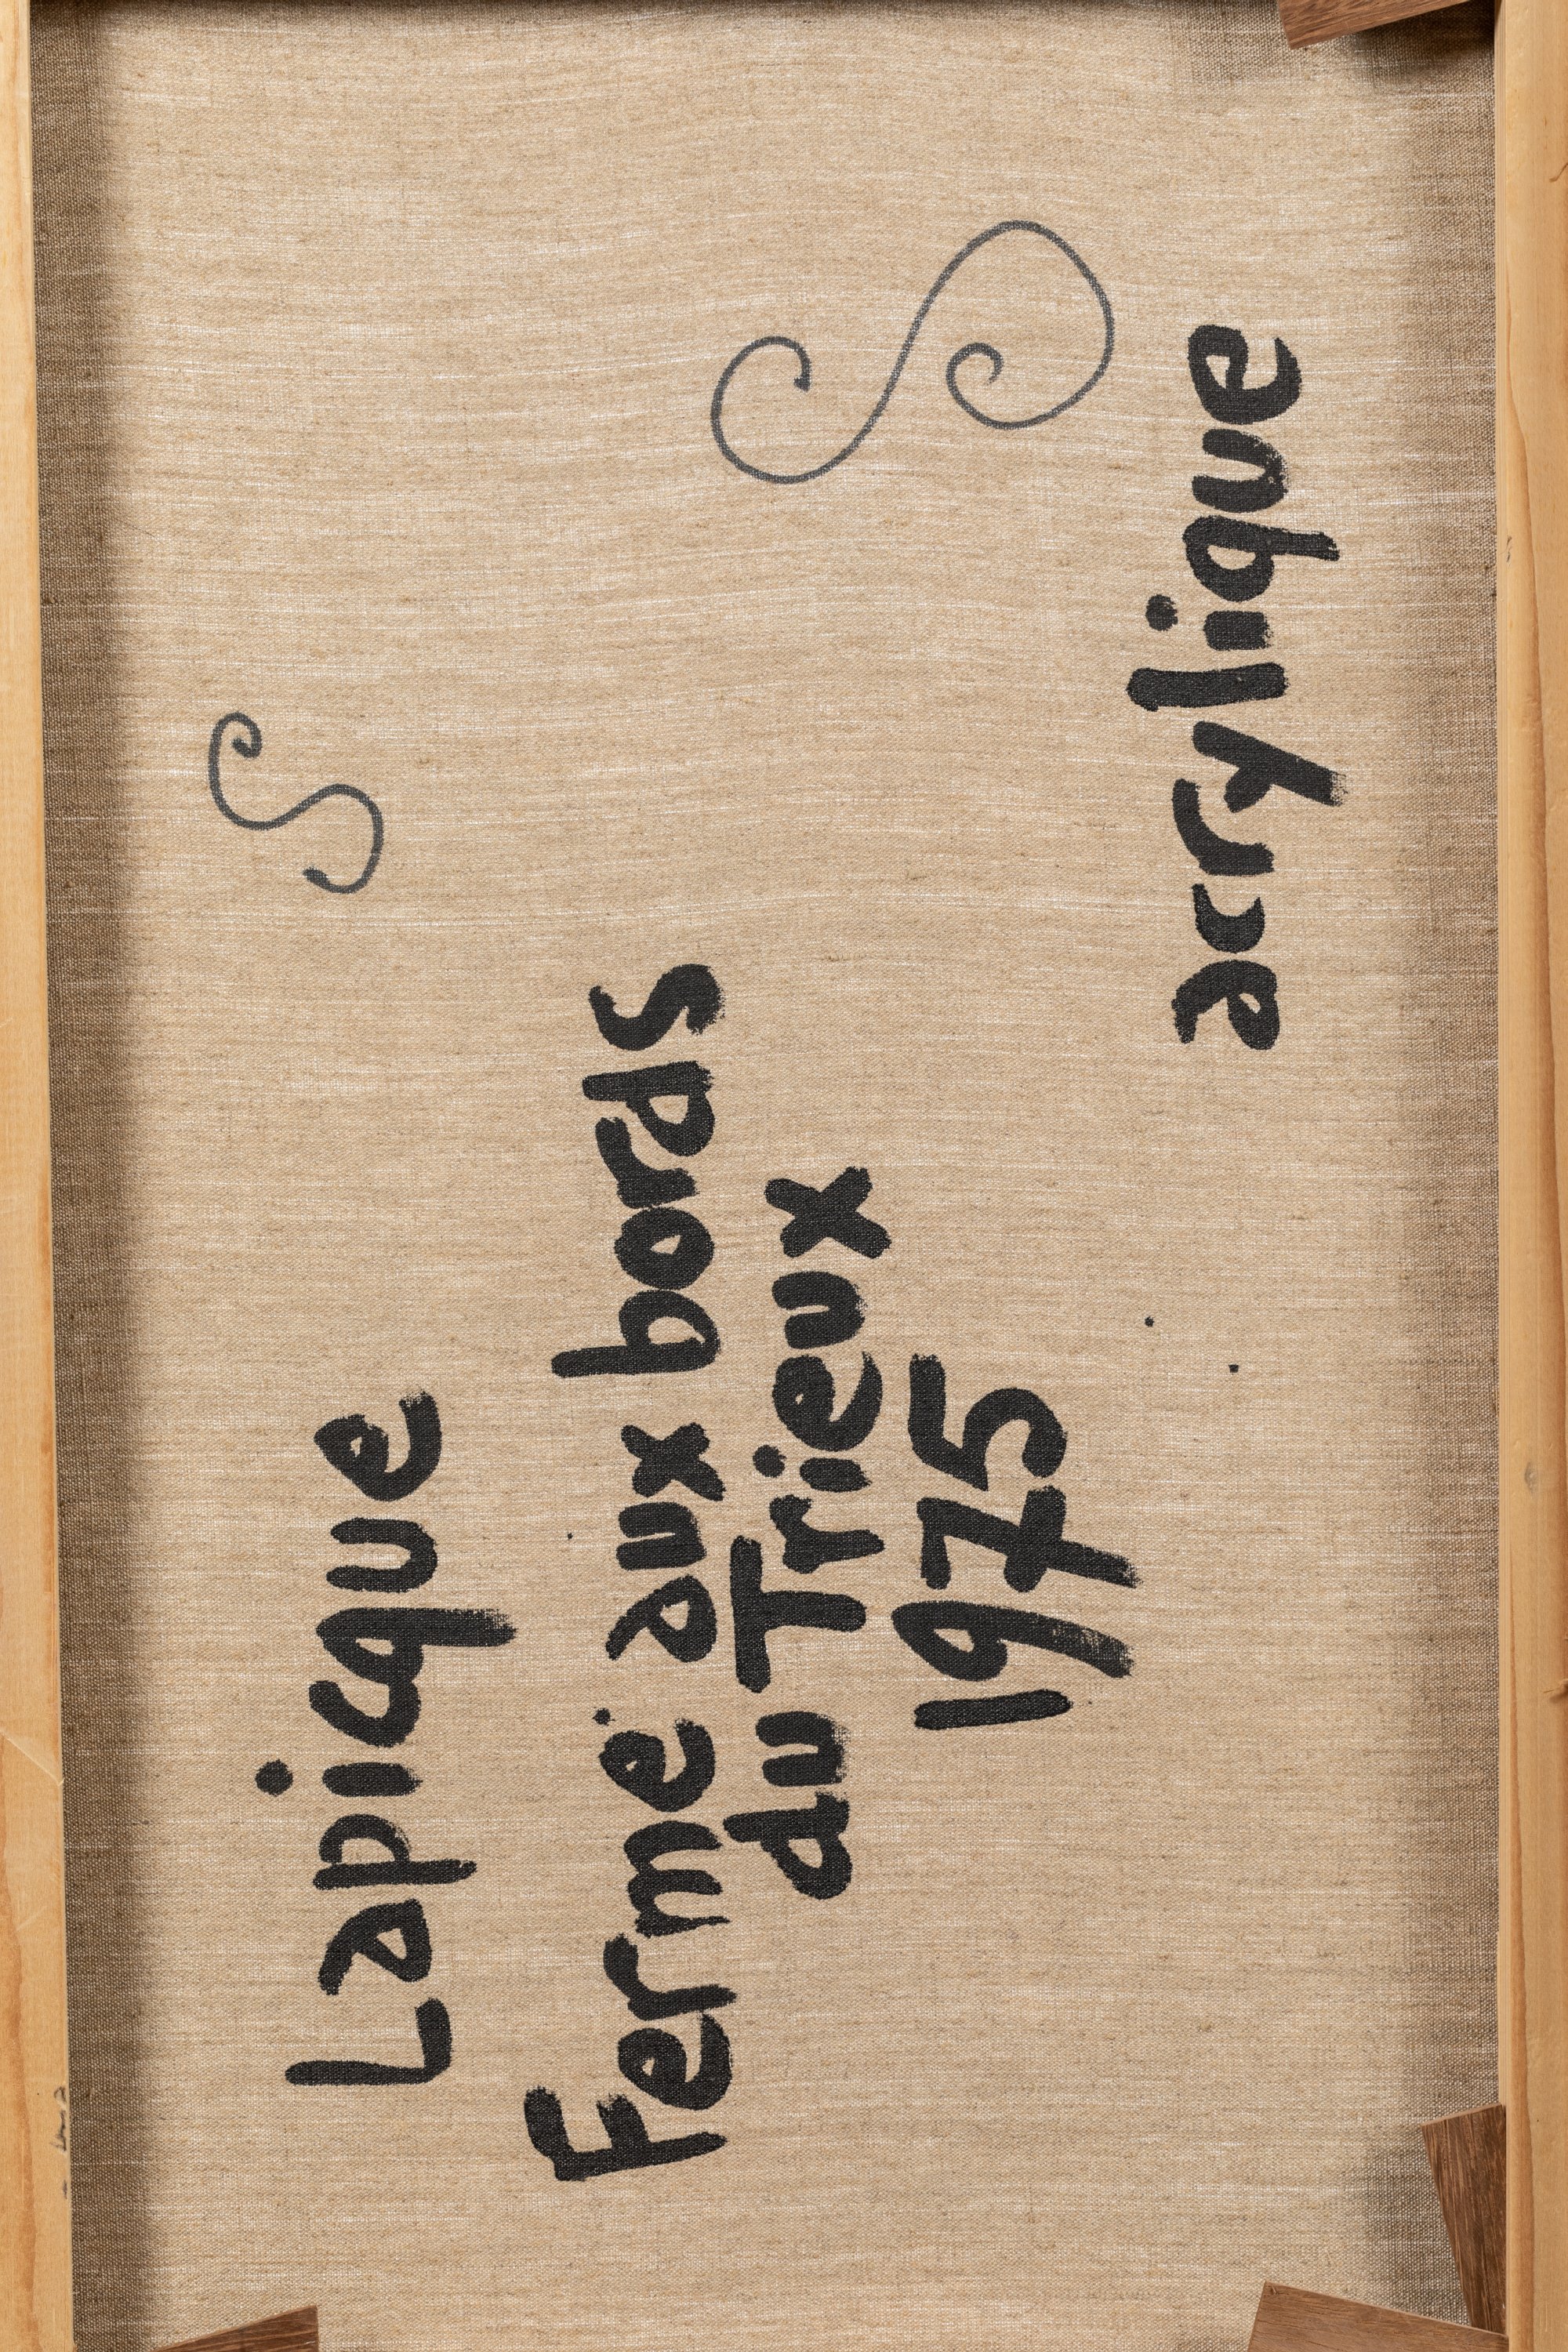 Lapicque
Ferme aux bords
du Trieux
1975
acrylique
S
S